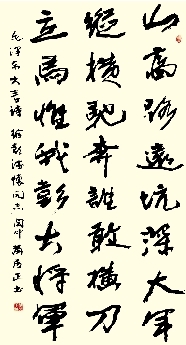 山高路遠坑深大軍
縱橫馳奔誰敢橫刀
立馬惟我彭大將軍
毛澤东六言詩 給彭德懷同志